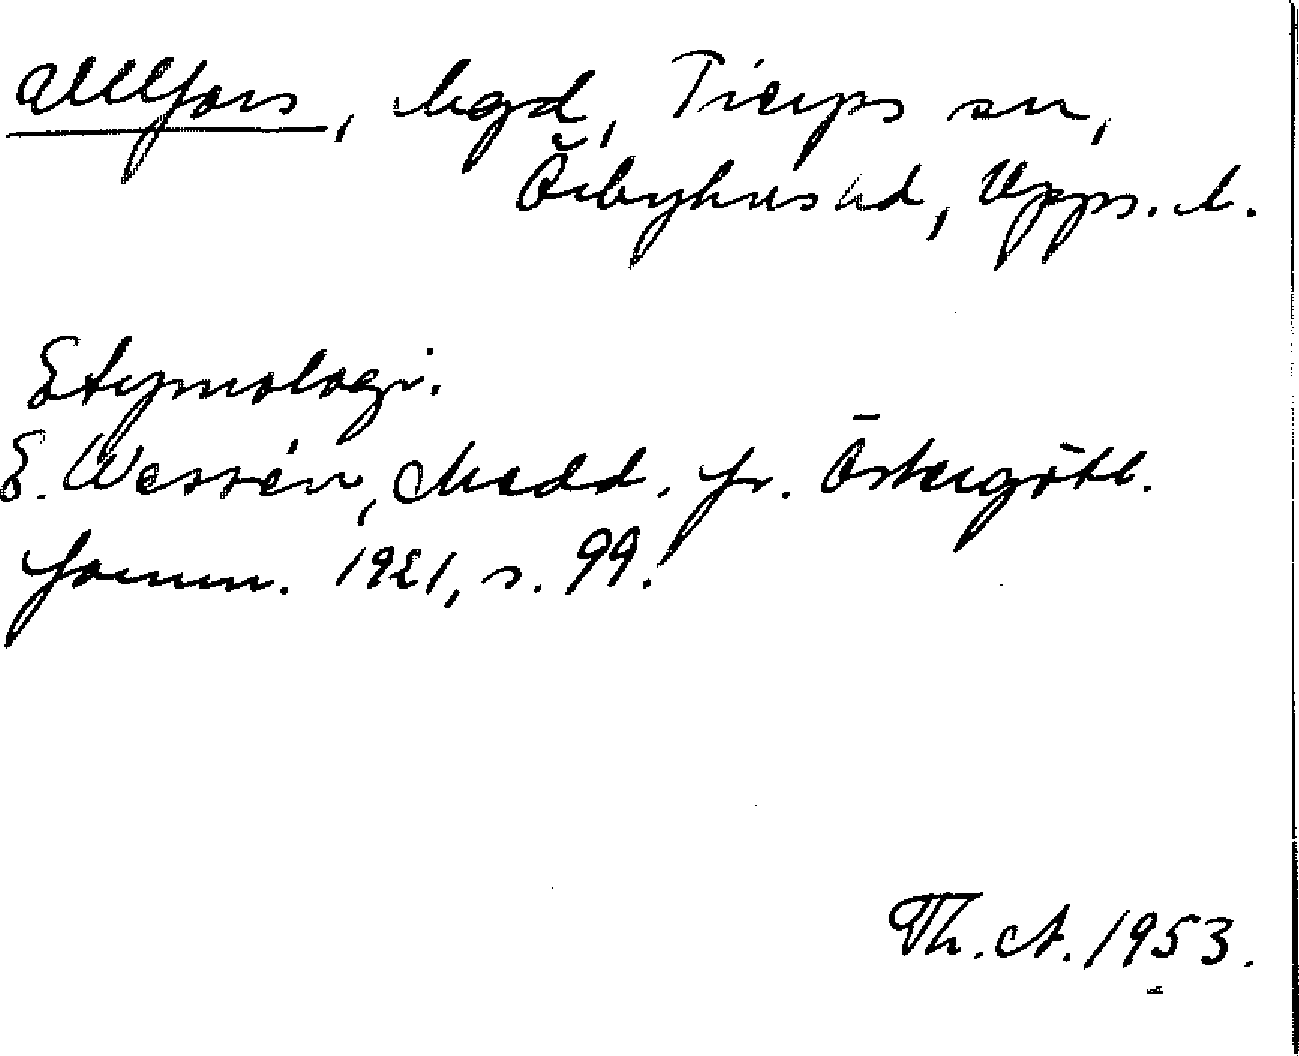 Ullfors, bgd, Tierps sn,
Örbyhus hd, Upps. l.
Etymologi.
E. Wessén, Medd. fr. Östergötl.
fornm. 1921, s. 99.
Th. A. 1953.